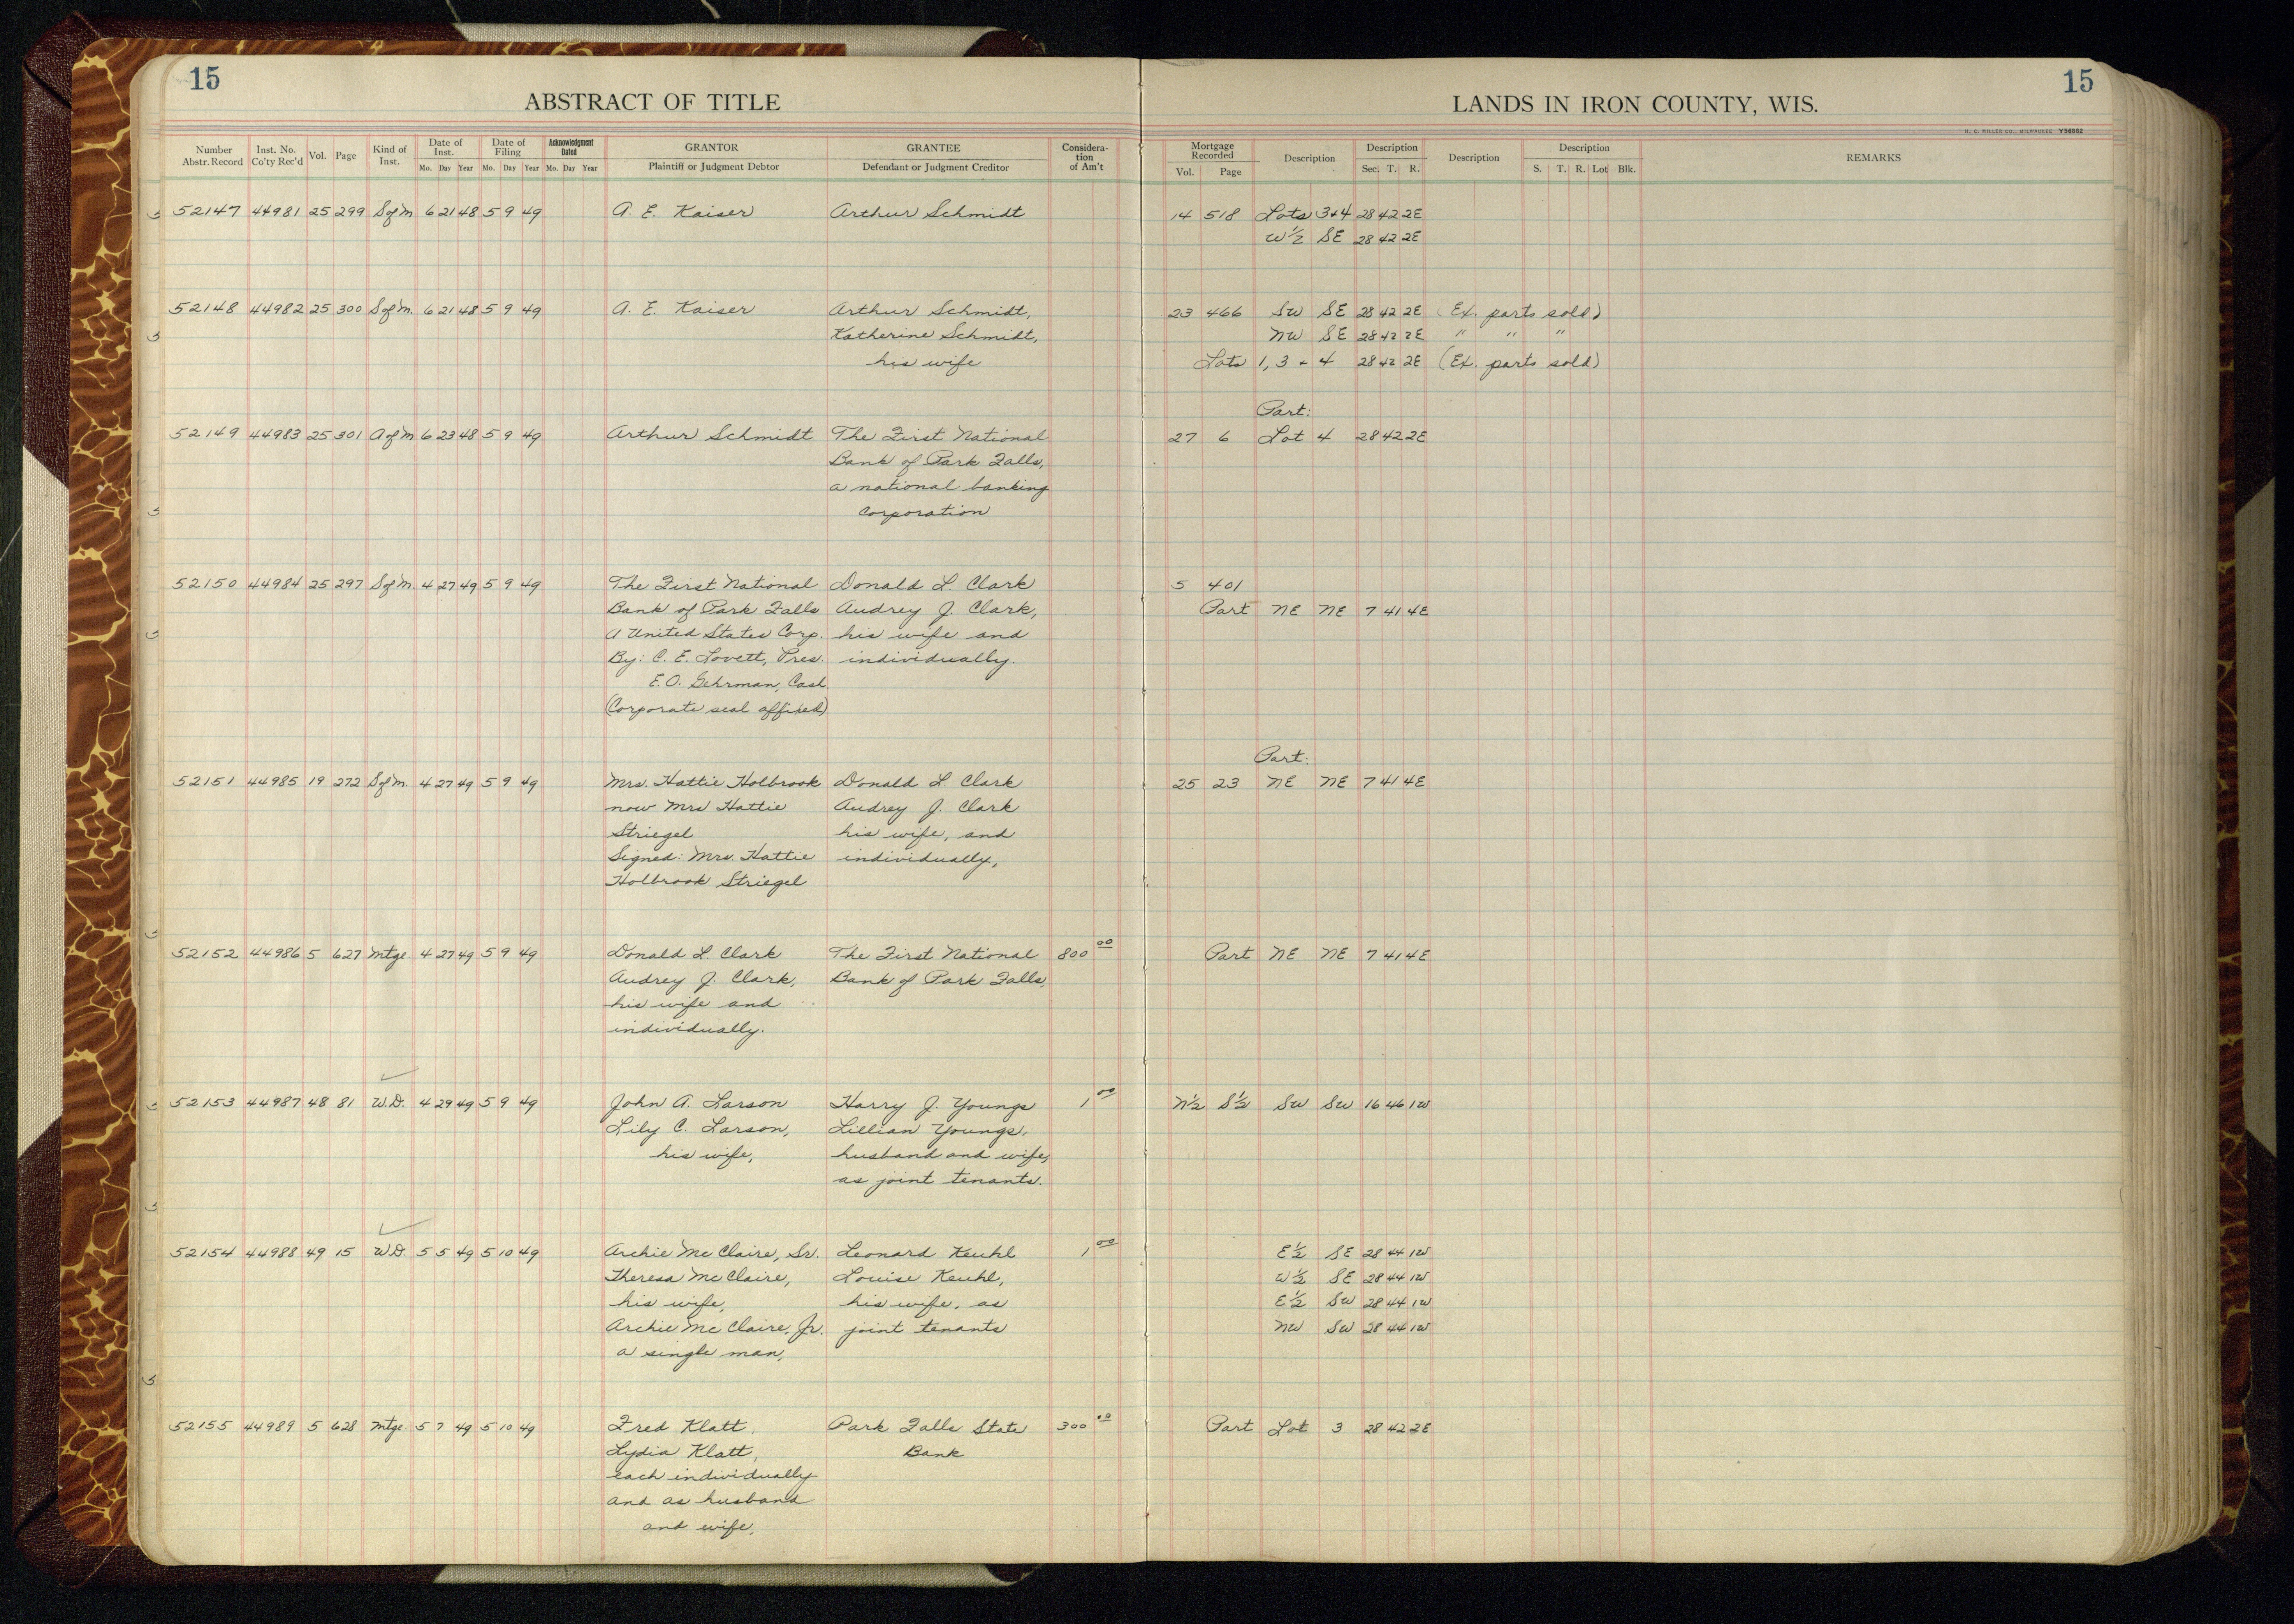 15
15
ABSTRACT OF TITLE
LANDS IN IRON COUNTY, WIS.
H. C. MILLER CO., MILWAUKEE Y56982
Number Abstr. Record Inst. No. Co'ty Rec'd Vol. Page Kind of Inst. Date of Inst. Mo. Day Year Date of Filing Mo. Day Year Acknowledgment Dated Mo. Day Year GRANTOR Plaintiff or Judgment Debtor GRANTEE Defendant or Judgment Creditor Considera-tion of Am't Mortgage Recorded Vol. Page Description Description Sec. T. R. Description Description S. T. R. Lot Blk. REMARKS
52147 44981 25 299 S of M 6 21 48 5 9 49 A. E. Kaiser Arthur Schmidt 14 518 Lots 3+4 28 42 2E
W½ SE 28 42 2E
52148 44982 25 300 S of M. 6 21 48 5 9 49 A. E. Kaiser Arthur Schmidt, 23 466 SW SE 28 42 2E (Ex. parts sold)
Katherine Schmidt, NW SE 28 42 2E " " "
his wife Lots 1, 3 + 4 28 42 2E (Ex. parts sold)
Part:
52149 44983 25 301 A of M 6 23 48 5 9 49 Arthur Schmidt The First National 27 6 Lot 4 28 42 2E
Bank of Park Falls,
a national banking
corporation
52150 44984 25 297 S of M. 4 27 49 5 9 49 The First National Donald L. Clark 5 401
Bank of Park Falls Audrey J. Clark, Part NE NE 7 41 4E
A United States Corp. his wife and
By: C. E. Lovett, Pres. individually.
E. O. Gehrman, Cash.
(Corporate seal affixed)
Part:
52151 44985 19 272 S of M. 4 27 49 5 9 49 Mrs. Hattie Holbrook Donald L. Clark 25 23 NE NE 7 41 4E
now Mrs Hattie Audrey J. Clark
Striegel his wife, and
Signed: Mrs. Hattie individually,
Holbrook Striegel
52152 44986 5 627 Mtge 4 27 49 5 9 49 Donald L Clark The First National 800 00 Part NE NE 7 41 4E
Audrey J. Clark, Bank of Park Falls,
his wife and
individually.
52153 44987 48 81 W.D. 4 29 49 5 9 49 John A. Larson Harry J. Youngs 1 00 N½ S½ SW SW 16 46 1W
Lily C. Larson, Lillian Youngs,
his wife, husband and wife,
as joint tenants.
52154 44988 49 15 W.D. 5 5 49 5 10 49 Archie Mc Claire, Sr. Leonard Keuhl 1 00 E½ SE 28 44 1W
Theresa Mc Claire, Louise Keuhl, W½ SE 28 44 1W
his wife, his wife, as E½ SW 28 44 1W
Archie Mc Claire, Jr. joint tenants NW SW 28 44 1W
a single man,
52155 44989 5 628 Mtge. 5 7 49 5 10 49 Fred Klatt, Park Falls State 300 00 Part Lot 3 28 42 2E
Lydia Klatt, Bank
each individually
and as husband
and wife,